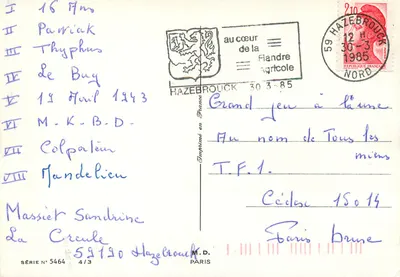 I 16 Ans
II Parriak
III Thyphus
IV Le Bug
V 19 Avril 1943
VI M-K-B-D-
VII Colpatein
VIII Mandelieu
Massiet Sandrine
La Creule
59190 Hazebrouck
SÉRIE N° 5464 4/3
au cœur
de la
Flandre
agricole
HAZEBROUCK 30-3-85
59 HAZEBROUCK
12 H
30-3
1985
NORD
2,10
Imprimé en France
M.D.
PARIS
Grand jeu à la une
Au nom de Tous les
miens
T.F.1.
Cédex 15014
Paris brune